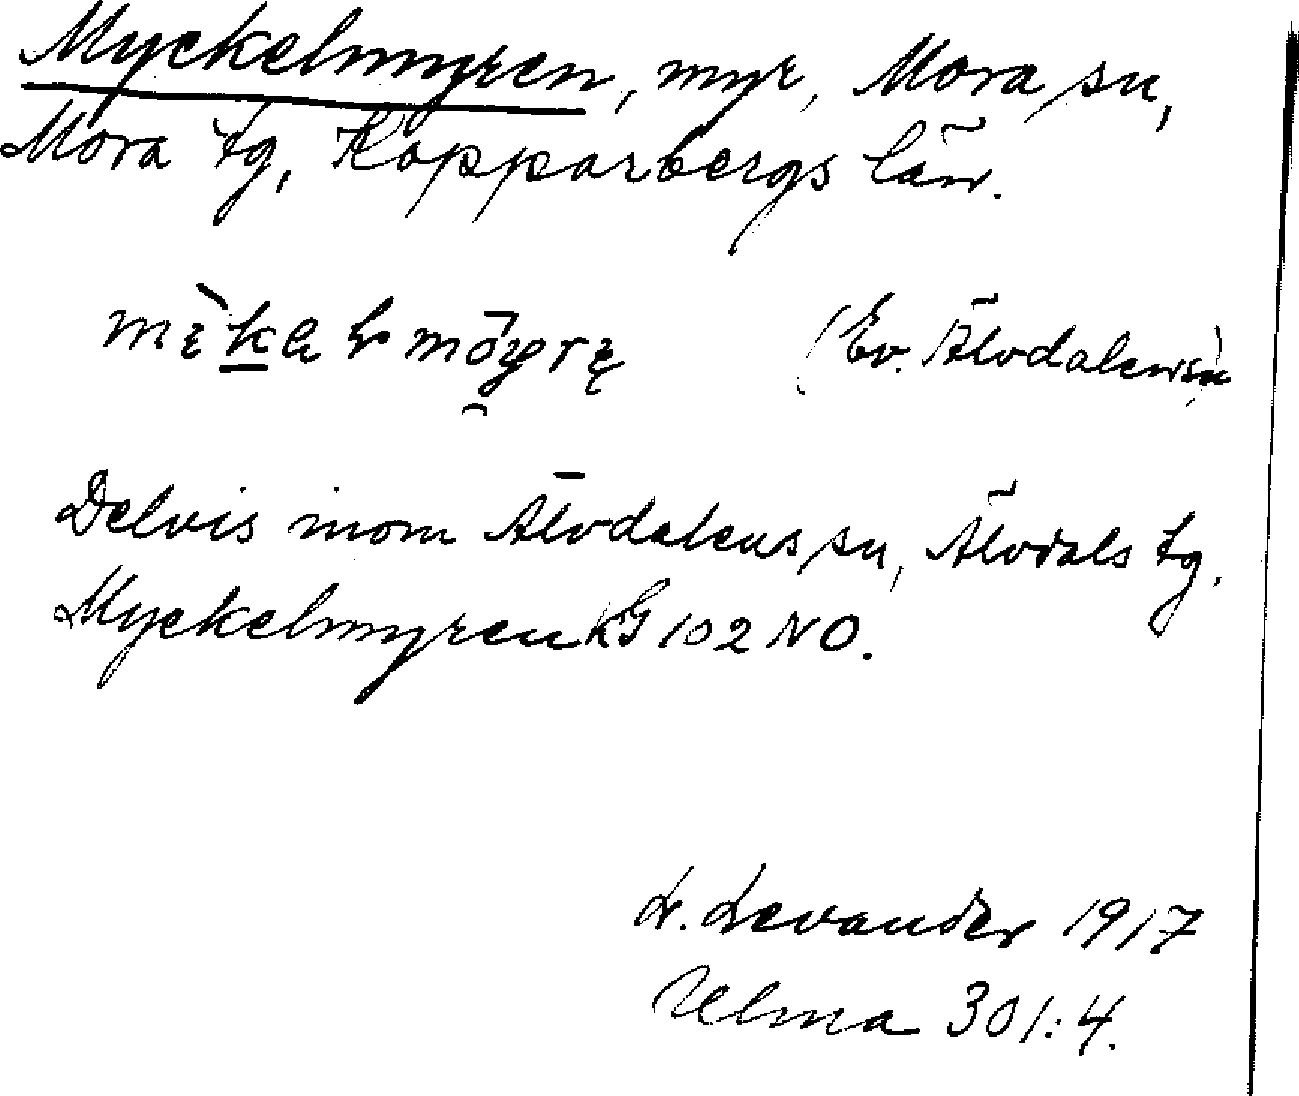 Myckelmyren, myr, Mora sn,
Mora tg, Kopparbergs län.
(Ev. Älvdalens sn)
Delvis inom Älvdalens sn, Älvdals tg.
Myckelmyren KG 102 NO.
L. Levander 1917
Ulma 301:4.